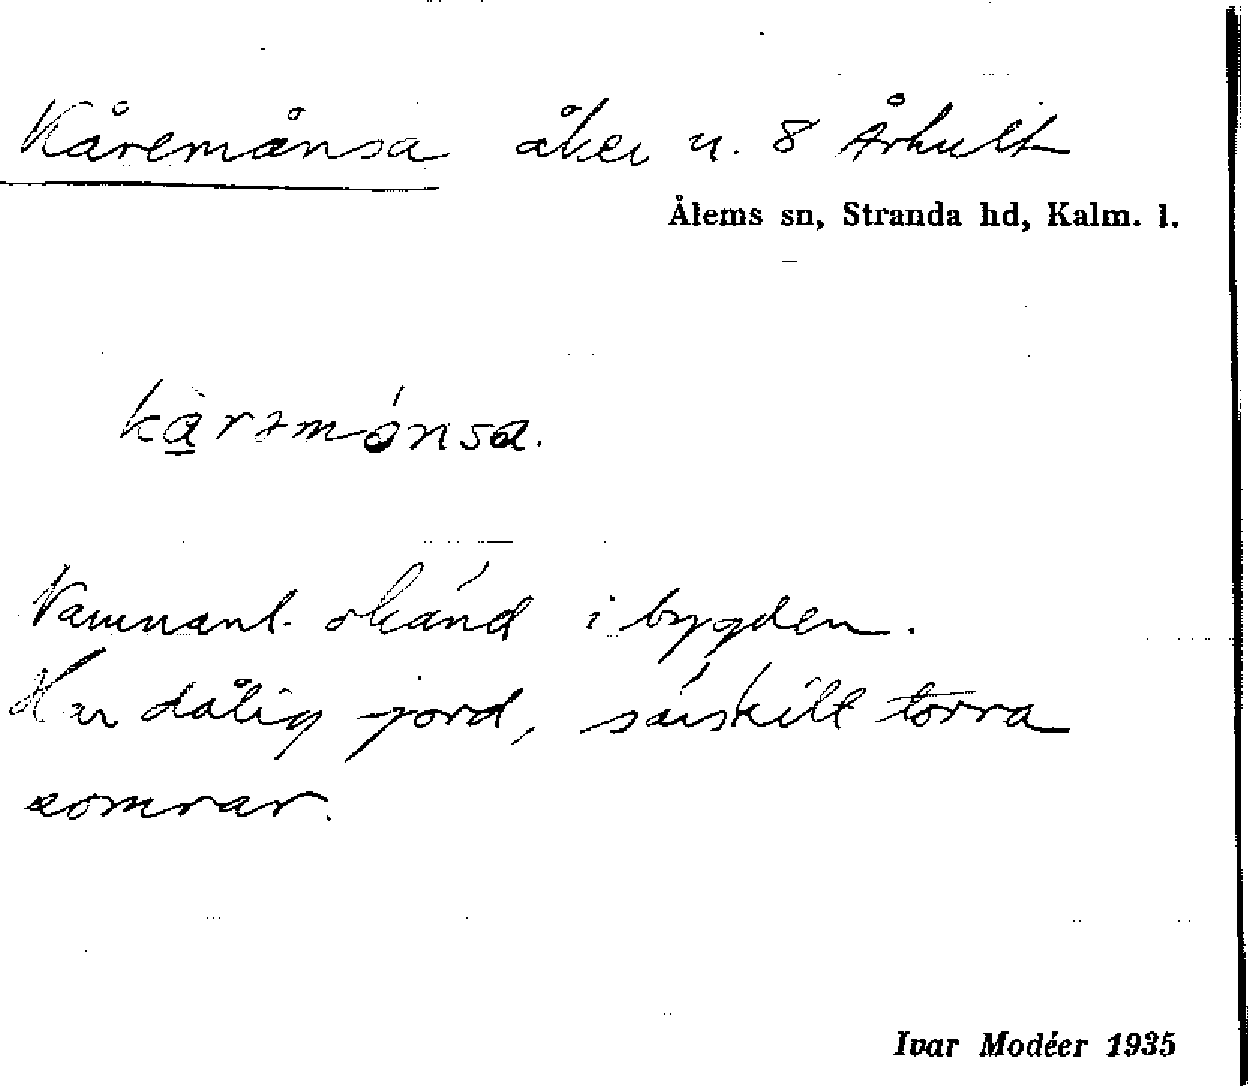 Kåremånsa åker n. 8 Århult
Ålems sn, Stranda hd, Kalm. l.
kåremånsa.
Namnanl. okänd i bygden.
Har dålig jord, särskilt torra
somrar.
Ivar Modéer 1935